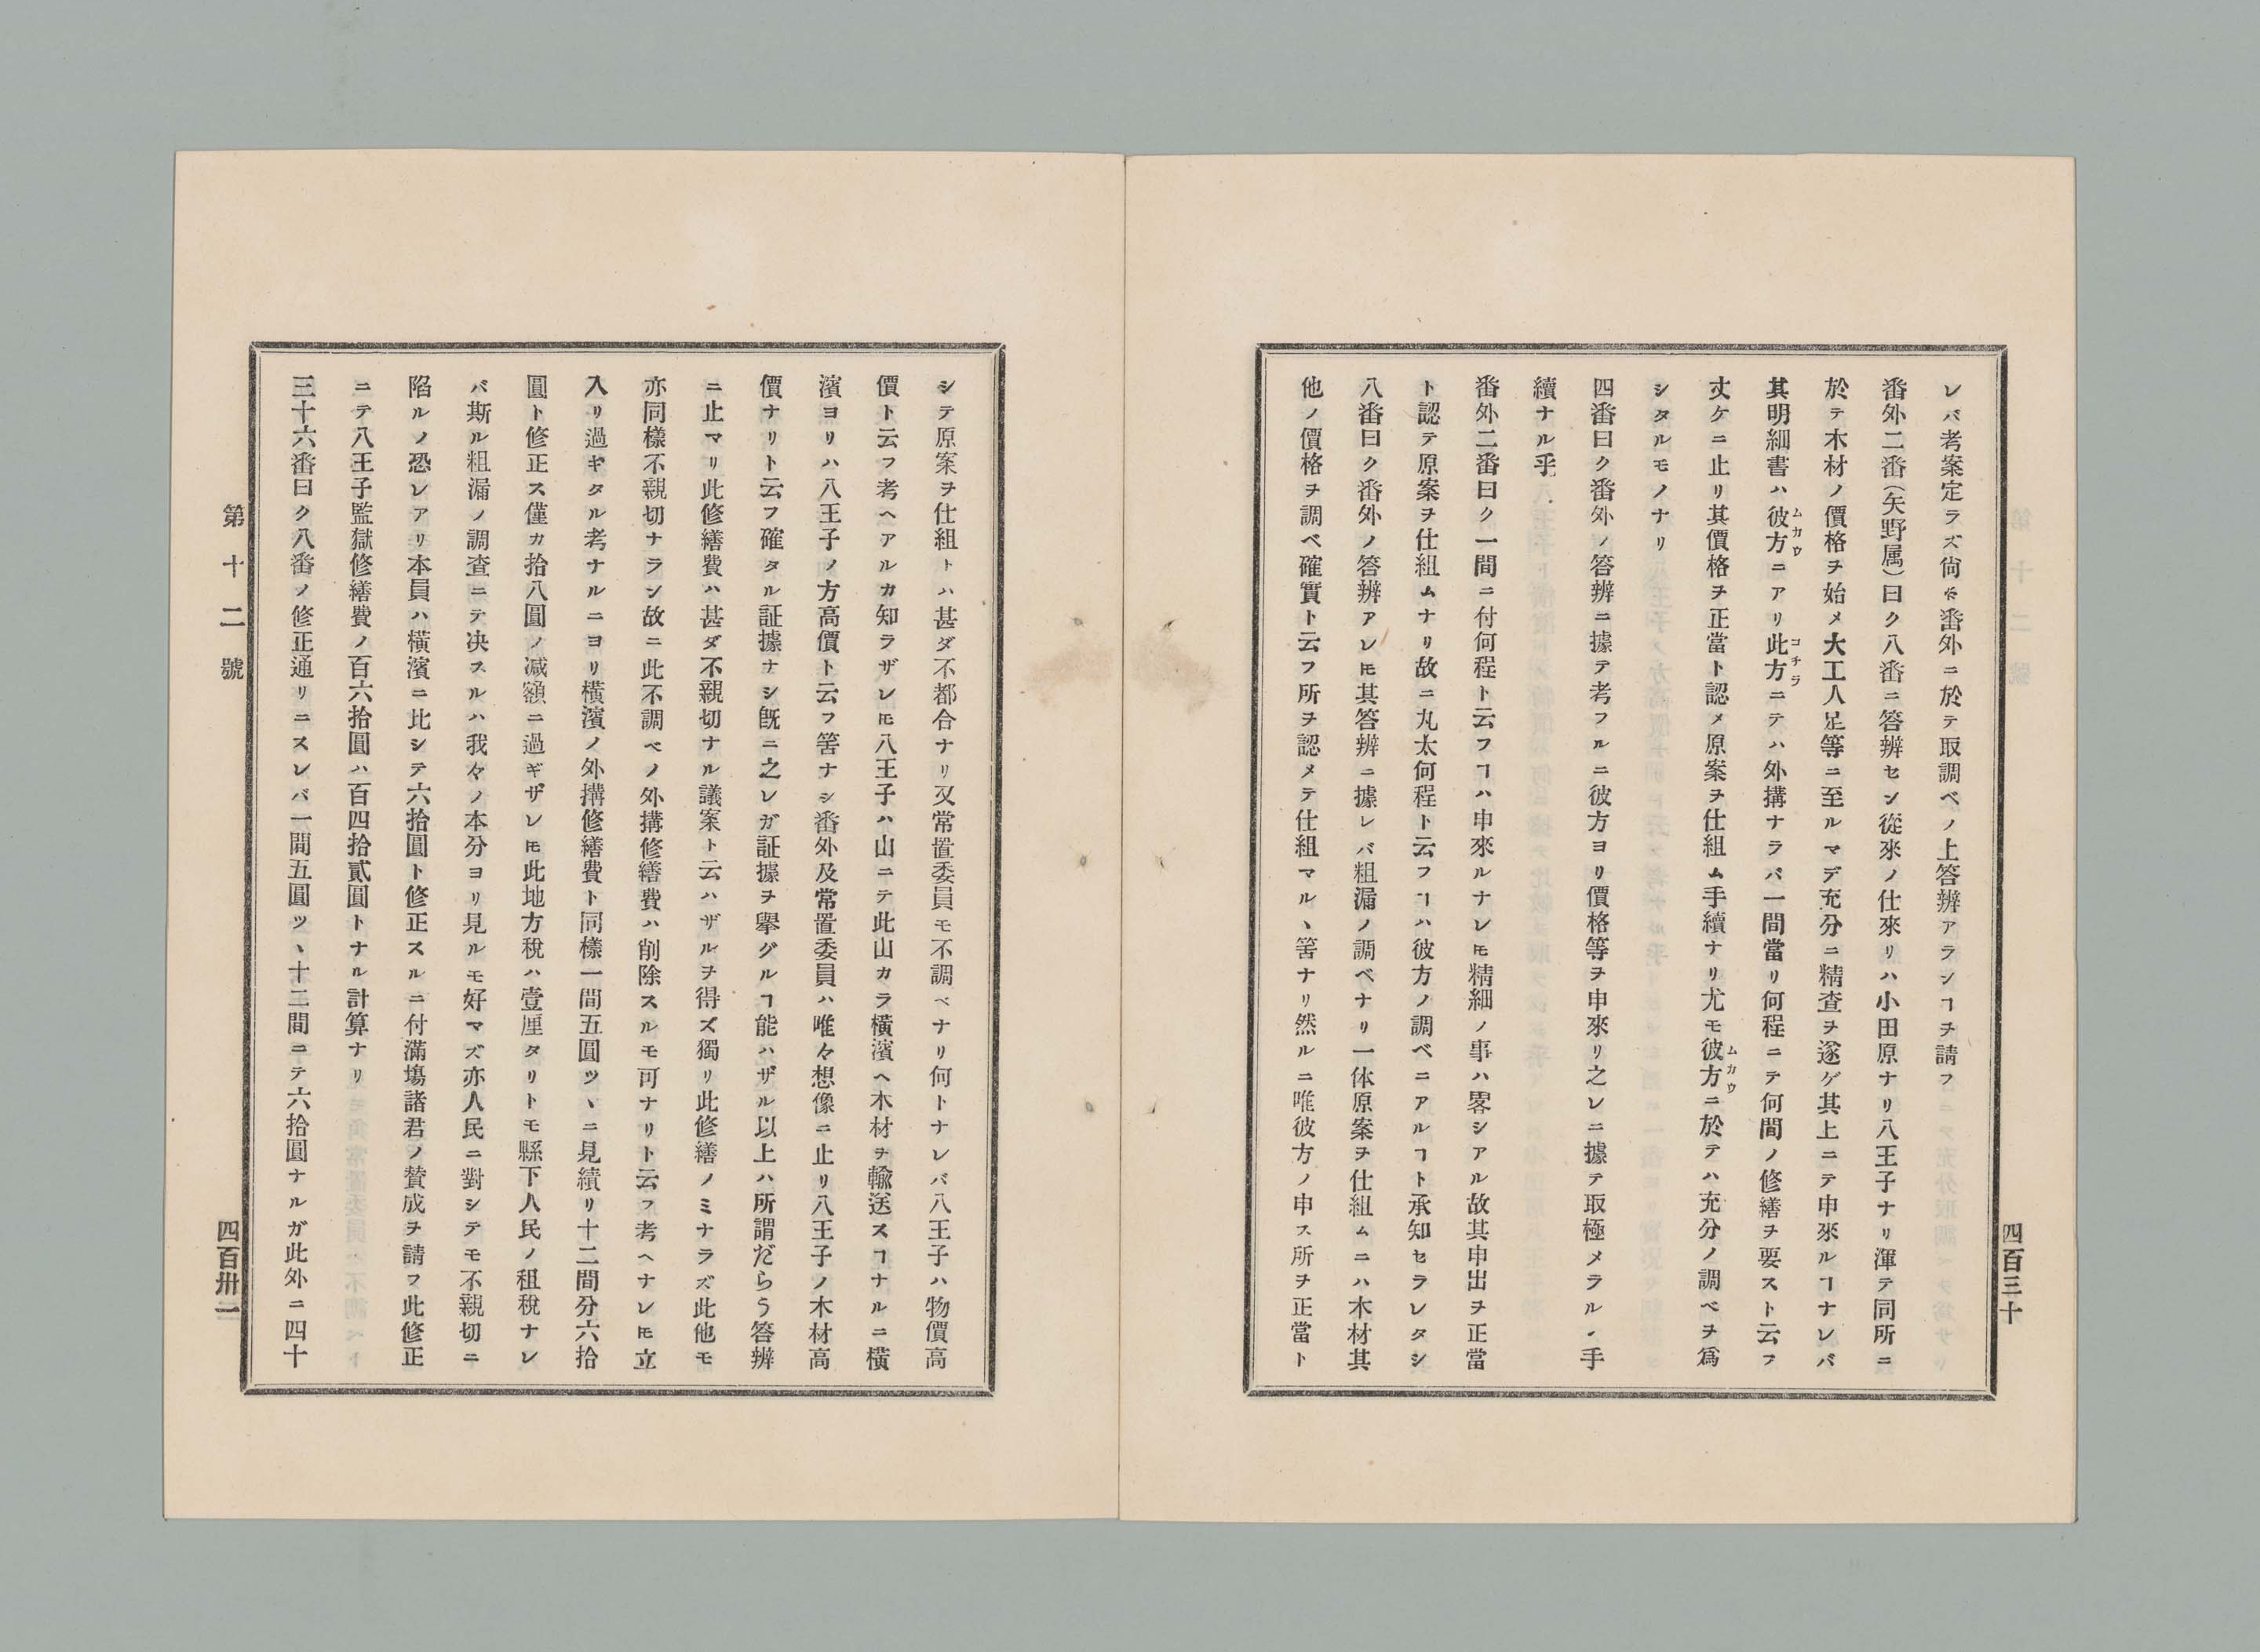 レバ考案定ラズ尙ホ番外ニ於テ取調ベノ上答辨アランヿヲ請フ
番外二番(矢野属)曰ク八番ニ答辨セン從來ノ仕來リハ小田原ナリ八王子ナリ渾テ同所ニ
於テ木材ノ價格ヲ始メ大工人足等ニ至ルマデ充分ニ精查ヲ遂ゲ其上ニテ申來ルヿナレバ
其明細書ハ彼方ムカウニアリ此方コチラニテハ外搆ナラバ一間當リ何程ニテ何間ノ修繕ヲ要スト云フ
𠀋ケニ止リ其價格ヲ正當ト認メ原案ヲ仕組ム手續ナリ尤モ彼方ムカウニ於テハ充分ノ調ベヲ爲
シタルモノナリ
四番曰ク番外ノ答辨ニ據テ考フルニ彼方ヨリ價格等ヲ申來リ之レニ據テ取極メラルヽ手
續ナル乎
番外二番曰ク一間ニ付何程ト云フヿハ申來ルナレ𪜈精細ノ事ハ畧シアル故其申出ヲ正當
ト認テ原案ヲ仕組ムナリ故ニ丸太何程ト云フヿハ彼方ノ調ベニアルヿト承知セラレタシ
八番曰ク番外ノ答辨アレ𪜈其答辨ニ據レバ粗漏ノ調ベナリ一体原案ヲ仕組ムニハ木材其
他ノ價格ヲ調ベ確實ト云フ所ヲ認メテ仕組マルヽ筈ナリ然ルニ唯彼方ノ申ス所ヲ正當ト
四百三十
シテ原案ヲ仕組トハ甚ダ不都合ナリ又常置委員モ不調ベナリ何トナレバ八王子ハ物價高
價ト云フ考ヘアルカ知ラザレ𪜈八王子ハ山ニテ此山カラ橫濱ヘ木材ヲ輸送スヿナルニ橫
濱ヨリハ八王子ノ方高價ト云フ筈ナシ番外及常置委員ハ唯々想像ニ止リ八王子ノ木材高
價ナリト云フ確タル証據ナシ旣ニ之レガ証據ヲ擧グルヿ能ハザル以上ハ所謂だらう答辨
ニ止マリ此修繕費ハ甚ダ不親切ナル議案ト云ハザルヲ得ズ獨リ此修繕ノミナラズ此他モ
亦同樣不親切ナラン故ニ此不調ベノ外搆修繕費ハ削除スルモ可ナリト云フ考ヘナレ𪜈立
入リ過ギタル考ナルニヨリ橫濱ノ外搆修繕費ト同樣一間五圓ツヽニ見績リ十二間分六拾
圓ト修正ス僅カ拾八圓ノ減額ニ過ギザレ𪜈此地方稅ハ壹厘タリトモ縣下人民ノ租稅ナレ
バ斯ル粗漏ノ調查ニテ决スルハ我々ノ本分ヨリ見ルモ好マズ亦人民ニ對シテモ不親切ニ
陷ルノ恐レアリ本員ハ橫濱ニ比シテ六拾圓ト修正スルニ付滿塲諸君ノ賛成ヲ請フ此修正
ニテ八王子監獄修繕費ノ百六拾圓ハ百四拾貳圓トナル計算ナリ
三十六番曰ク八番ノ修正通リニスレバ一間五圓ツヽ十二間ニテ六拾圓ナルガ此外ニ四十
第十二號
四百卅一